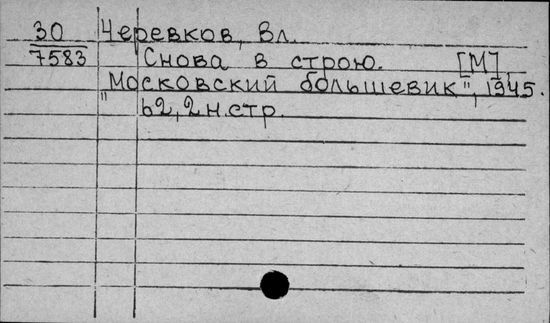 30 Черевков, Вл.
7583 Снова в строю. [М],
"Московский большевик", 1945.
62, 2 н.стр.